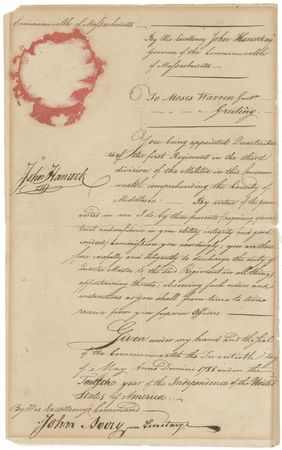 Commonwealth of Massachusetts
By His Excellency John Hancock Esq
Governor of the Commonwealth
of Massachusetts
To Moses Warren Gent
Greeting
You being appointed Quarter Mas
ter of the first Regiment in the third
division of the Militia in this Common
wealth comprehending the County of
Middlesex By virtue of the power
vested in me I do by these presents, (reposing special
trust and confidence in your ability, integrity and good
conduct) Commission you accordingly; you are there
fore carefully and diligently to discharge the duty of
Quarter Master to the said Regiment in all things
appertaining thereto; observing such orders and
instructions as you shall from time to time
receive from your superior Officers.
John Hancock
Given under my hand and the Seal
of the Commonwealth the Twentieth day
of May Anno Domini 1788 and in the
Twelfth year of the Independence of the United
States of America
By His Excellency's Command
John Avery jun Secretary